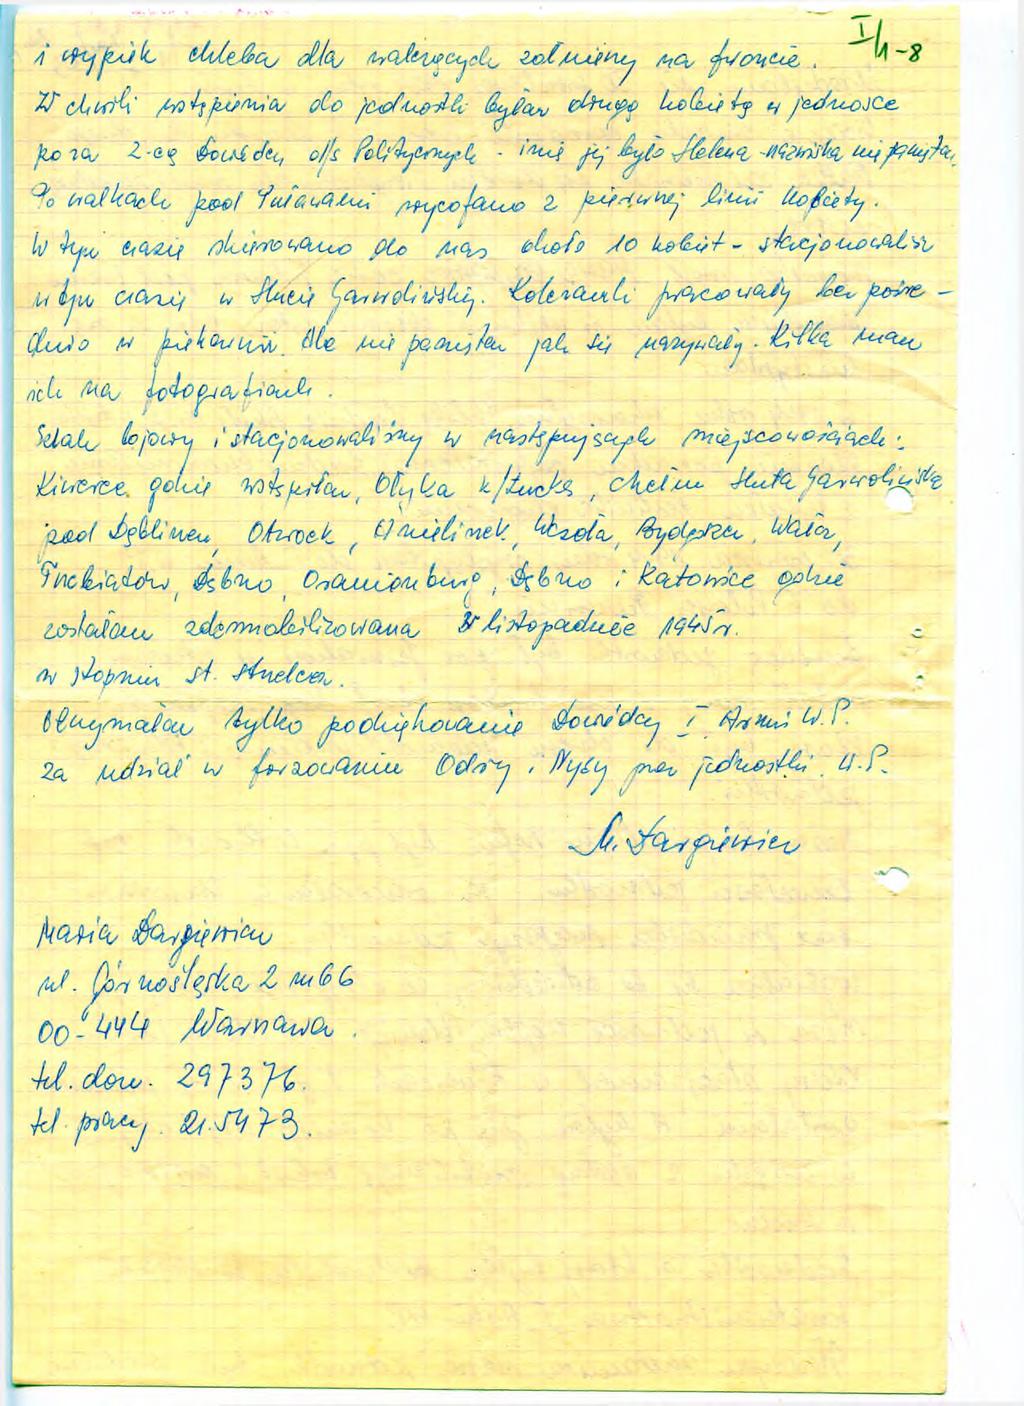 I/1-8
i wypiek chleba dla walczących żołnierzy na froncie.
W chwili wstąpienia do jednostki byłam drugą kobietą w jednostce
poza z-cą Dowódcy d/s Politycznych - imię jej było Helena - nazwiska nie pamiętam.
Po walkach pod Puławami wycofano z pierwszej linii kobiety.
W tym czasie skierowano do nas około 10 kobiet - stacjonowaliśmy
w tym czasie w Hucie Garwolińskiej. Koleżanki pracowały bezpośre-
dnio w piekarni. Ale nie pamiętam jak się nazywały. Kilka mam
ich na fotografiach.
Szlak bojowy i stacjonowaliśmy w następujących miejscowościach:
Kiwerce gdzie wstąpiłam, Ołyka k/Łucka, Chełm Huta Garwolińska
pod Dęblinem, Otwock, Wrzola, Bydgoszcz, Wałcz,
Trzebiatów, Dębno, Oranienburg, Dębno i Katowice gdzie
zostałam zdemobilizowana w listopadzie 1945 r.
w stopniu st. strzelca.
Otrzymałam tylko podziękowanie Dowódcy I Armii W.P.
za udział w forsowaniu Odry i Nysy przez jednostki W.P.
M. Dargiewicz
Maria Dargiewicz
ul. Górnośląska 2 m 66
00-444 Warszawa.
tel. dom. 297376.
tel. pracy. 21.5473.